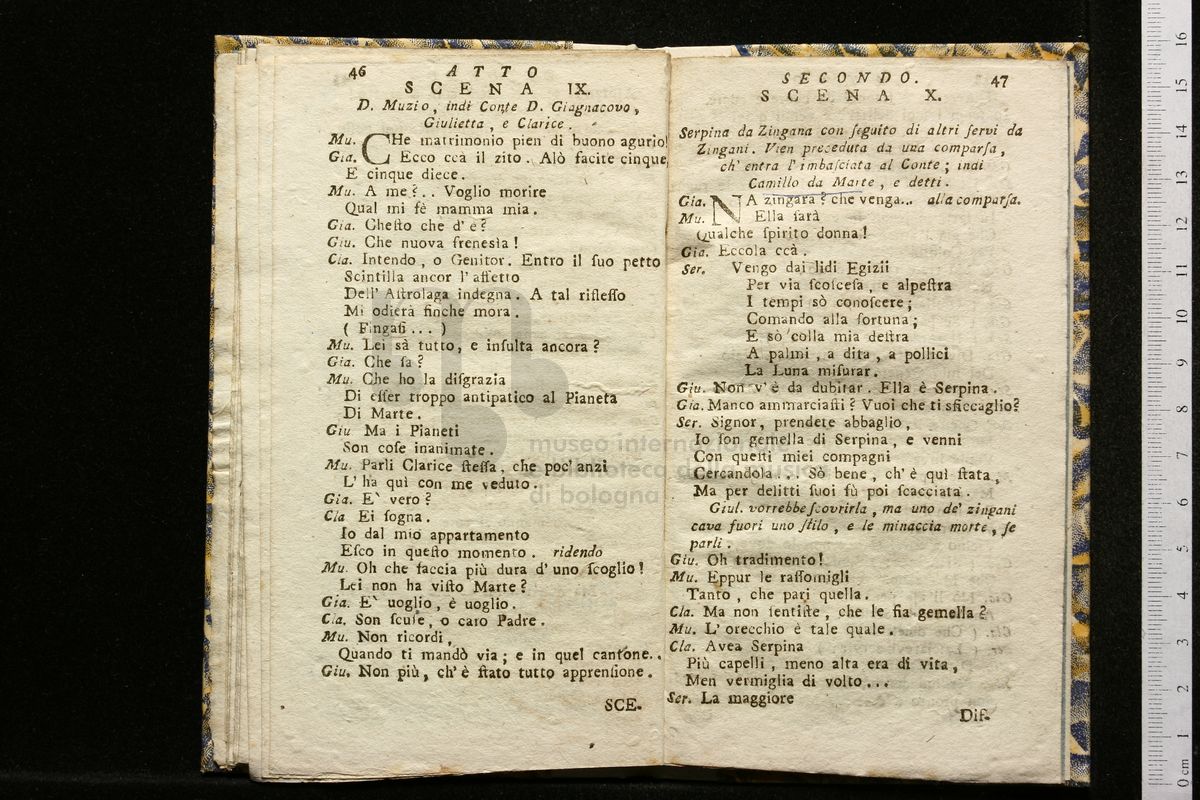 46
ATTO
SCENA IX.
D. Muzio, indi Conte D. Giagnacovo,
Giulietta, e Clarice.
Mu. CHe matrimonio pien di buono agurio!
Gia. Ecco ccà il zito. Alò facite cinque,
E cinque diece.
Mu. A me?.. Voglio morire
Qual mi fè mamma mia.
Gia. Chesto che d'è?
Giu. Che nuova frenesìa!
Cla. Intendo, o Genitor. Entro il suo petto
Scintilla ancor l'affetto
Dell' Astrolaga indegna. A tal riflesso
Mi odierà finche mora.
( Fingasi... )
Mu. Lei sà tutto, e insulta ancora?
Gia. Che sa?
Mu. Che ho la disgrazia
Di esser troppo antipatico al Pianeta
Di Marte.
Giu Ma i Pianeti
Son cose inanimate.
Mu. Parli Clarice stessa, che poc' anzi
L'ha quì con me veduto.
Gia. E' vero?
Cla Ei sogna.
Io dal mio appartamento
Esco in questo momento. ridendo
Mu. Oh che faccia più dura d'uno scoglio!
Lei non ha visto Marte?
Gia. E' uoglio, è uoglio.
Cla. Son scuse, o caro Padre.
Mu. Non ricordi,
Quando ti mandò via; e in quel cantone..
Giu. Non più, ch'è stato tutto apprensione.
SCE-
SECONDO.
47
SCENA X.
Serpina da Zingana con seguito di altri servi da
Zingani. Vien preceduta da una comparsa,
ch' entra l'imbasciata al Conte; indi
Camillo da Marte, e detti.
Gia. NA zingara? che venga... alla comparsa.
Mu. Ella sarà
Qualche spirito donna!
Gia. Eccola ccà.
Ser. Vengo dai lidi Egizii
Per via scoscesa, e alpestra
I tempi sò conoscere;
Comando alla fortuna;
E sò colla mia destra
A palmi, a dita, a pollici
La Luna misurar.
Giu. Non v'è da dubitar. Ella è Serpina.
Gia. Manco ammarciasti? Vuoi che ti sficcaglio?
Ser. Signor, prendete abbaglio,
Io son gemella di Serpina, e venni
Con questi miei compagni
Cercandola... Sò bene, ch'è quì stata,
Ma per delitti suoi fù poi scacciata.
Giul. vorrebbe scovrirla, ma uno de' zingani
cava fuori uno stilo, e le minaccia morte, se
parli.
Giu. Oh tradimento!
Mu. Eppur le rassomigli
Tanto, che pari quella.
Cla. Ma non sentiste, che le fia gemella?
Mu. L'orecchio è tale quale.
Cla. Avea Serpina
Più capelli, meno alta era di vita,
Men vermiglia di volto...
Ser. La maggiore
Dif-
museo internazionale
e biblioteca della musica
di bologna